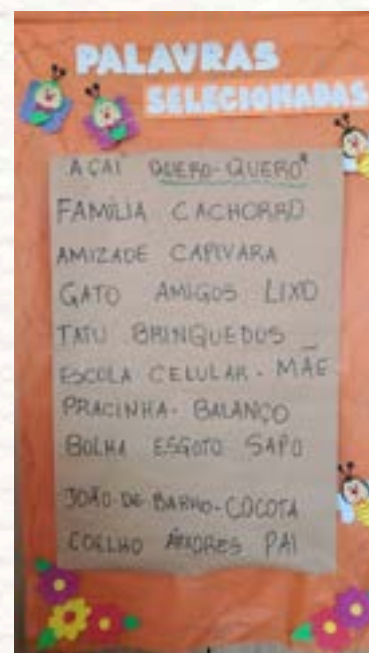 PALAVRAS
SELECIONADAS
AÇAÍ QUERO-QUERO
FAMÍLIA CACHORRO
AMIZADE CAPIVARA
GATO AMIGOS LIXO
TATU BRINQUEDOS
ESCOLA CELULAR - MÃE
PRACINHA - BALANÇO
BOLHA ESGOTO SAPO
JOÃO-DE-BARRO - COCOTA
COELHO ÁRVORES PAI